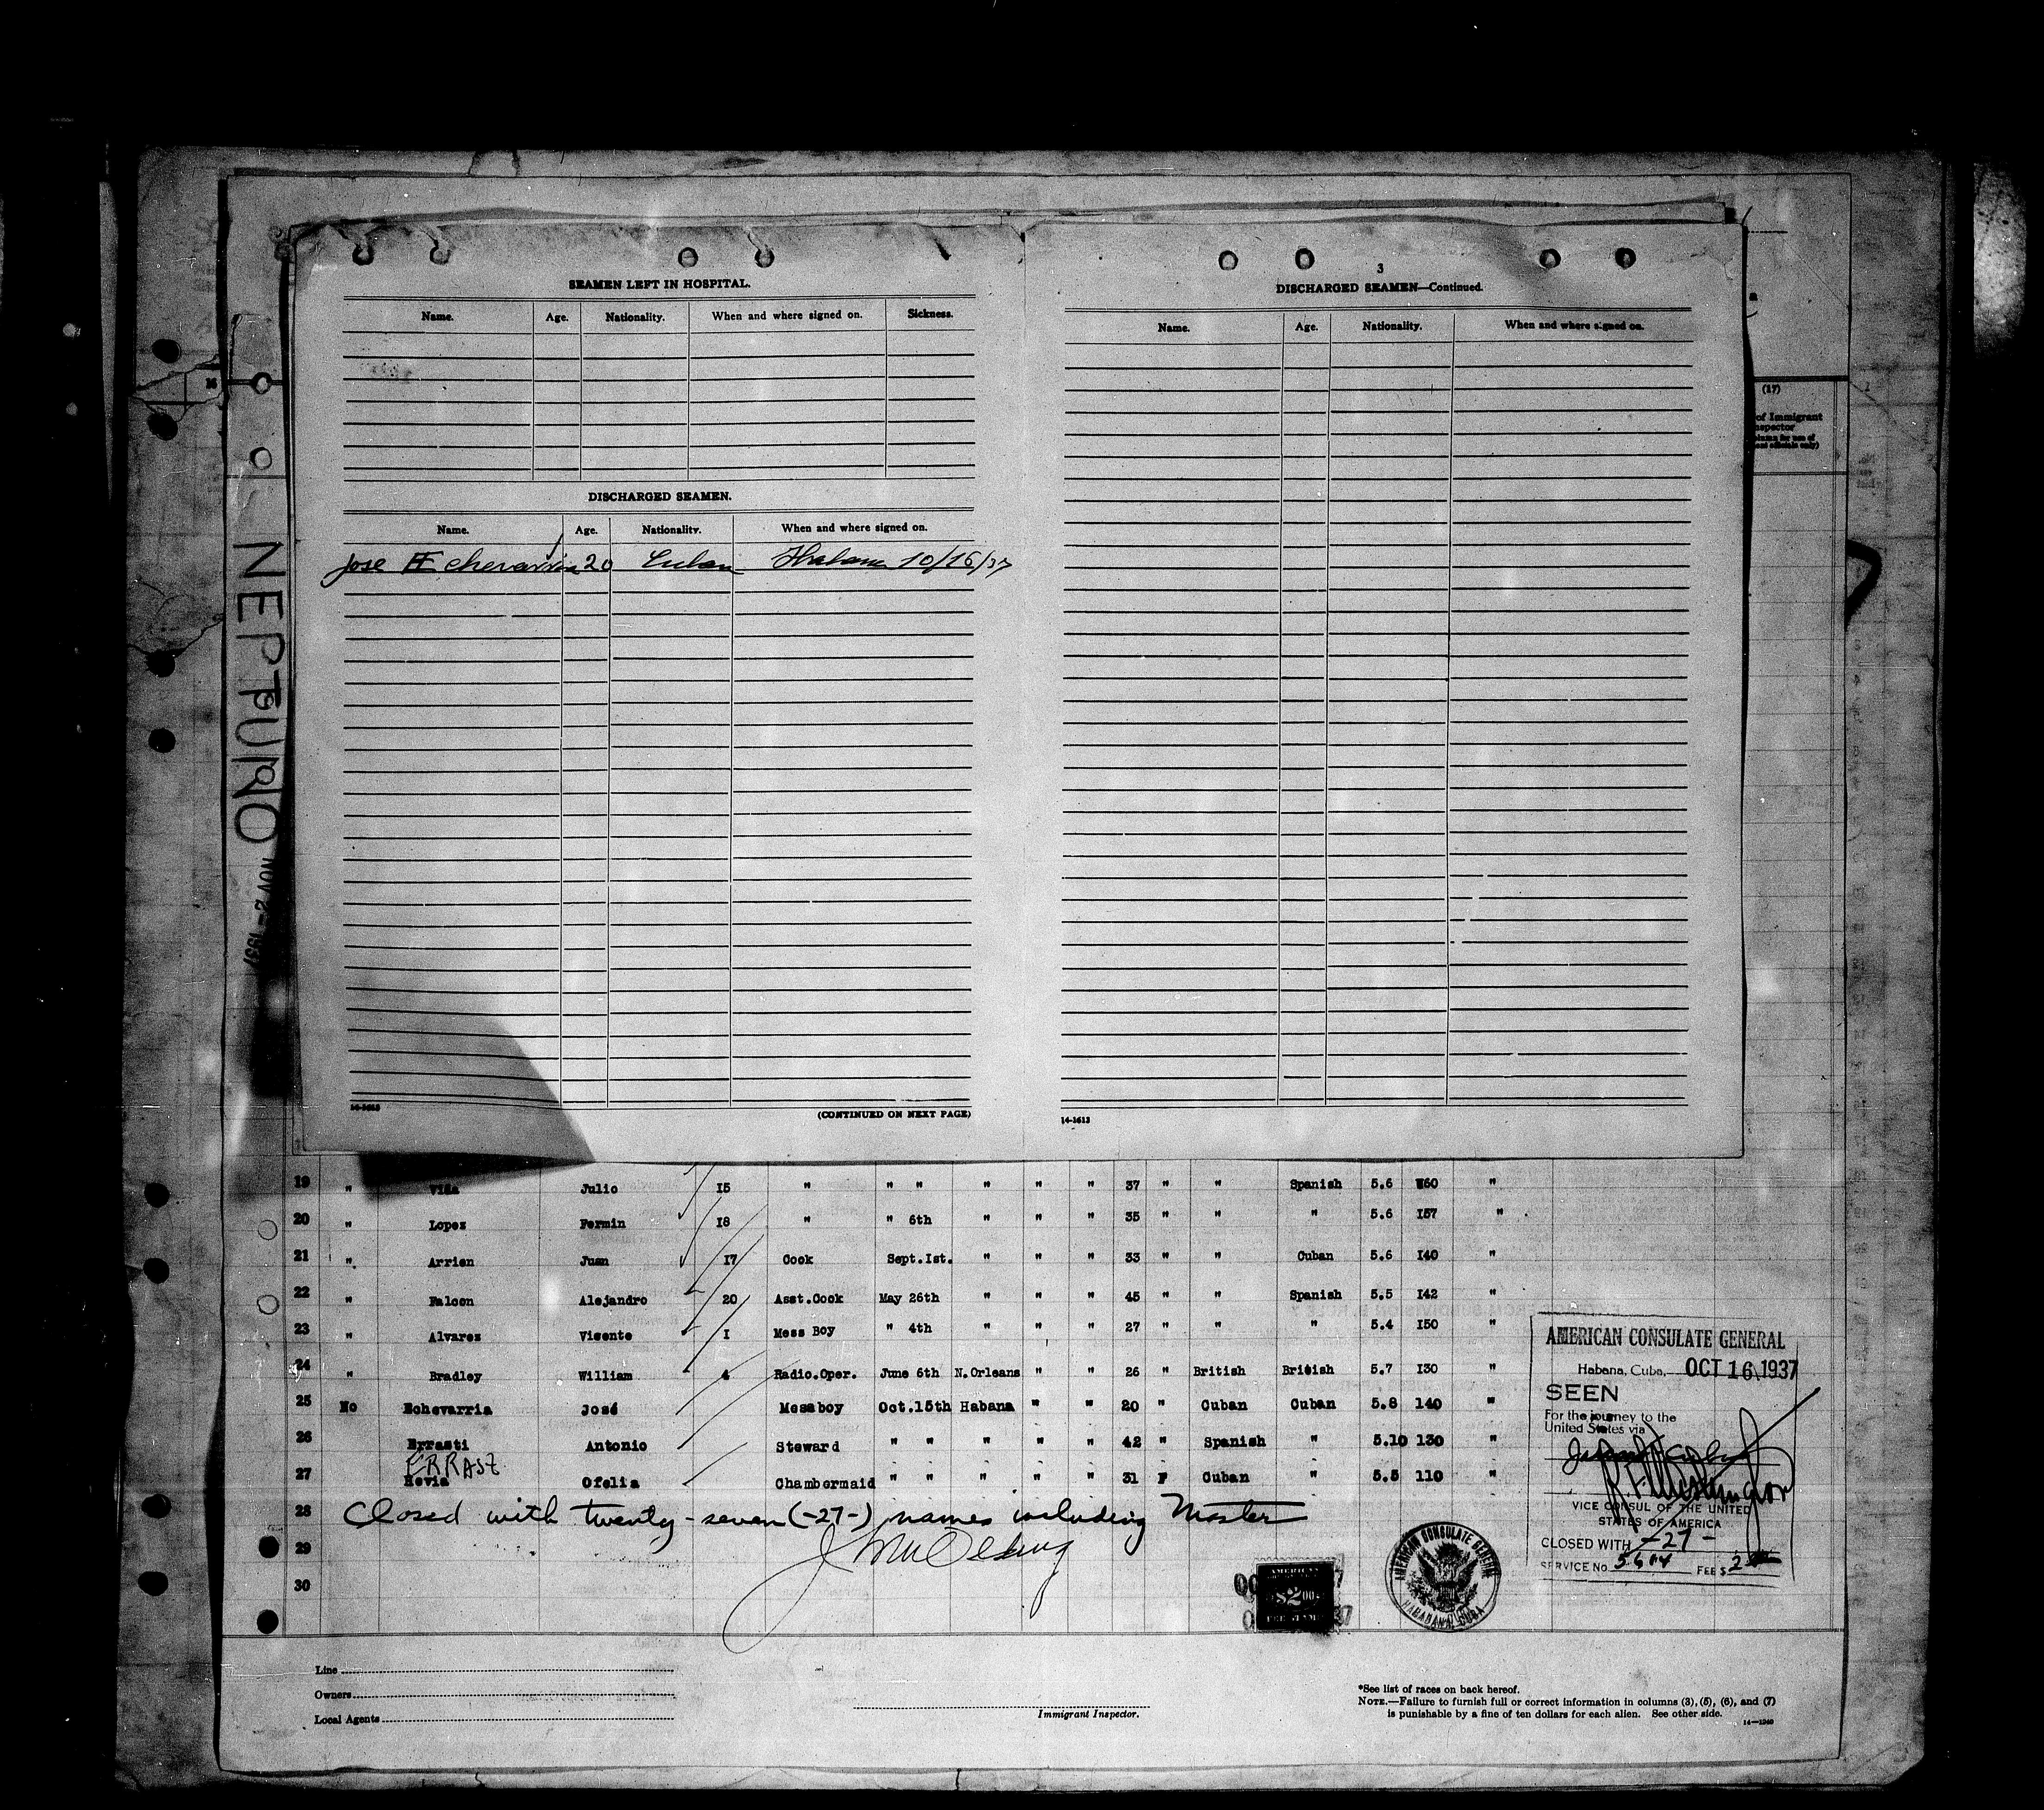 SEAMEN LEFT IN HOSPITAL.
Name. Age. Nationality. When and where signed on. Sickness.
DISCHARGED SEAMEN.
Name. Age. Nationality. When and where signed on.
Jose Echevarria 20 Cuban Habana 10/16/37
14-1613
(CONTINUED ON NEXT PAGE)
3
DISCHARGED SEAMEN—Continued.
Name. Age. Nationality. When and where signed on.
14-1613
(17)
of Immigrant
NEPTUNO
NOV 2 - 1937
19 " Viña Julio 15 " " " " " " 37 " " Spanish 5.6 160 "
20 " Lopez Fermin 18 " " 6th " " " 35 " " " 5.6 157 "
21 " Arrien Juan 17 Cook Sept.1st. " " " 33 " " Cuban 5.6 140 "
22 " Falcon Alejandro 20 Asst.Cook May 26th " " " 45 " " Spanish 5.5 142 "
23 " Alvarez Vicente 1 Mess Boy " 4th " " " 27 " " " 5.4 150 "
24 " Bradley William 4 Radio.Oper. June 6th N.Orleans " " 26 " British British 5.7 130 "
25 No Echevarria José Messboy Oct.15th Habana " " 20 " Cuban Cuban 5.8 140 "
26 Errasti Antonio Steward " " " " " 42 " Spanish " 5.10 130 "
ERRAST
27 Hevia Ofelia Chambermaid " " " " " 31 F Cuban " 5.5 110 "
28 Closed with twenty-seven (-27-) names including Master
29
30
AMERICAN CONSULATE GENERAL
Habana, Cuba, OCT 16 1937
SEEN
For the journey to the
United States via
VICE CONSUL OF THE UNITED
STATES OF AMERICA
CLOSED WITH -27-
SERVICE No. FEE $ 2
AMERICAN
$2.00
FEE STAMP
AMERICAN CONSULATE GENERAL
HABANA, CUBA
Line
Owners
Local Agents
Immigrant Inspector.
*See list of races on back hereof.
NOTE.—Failure to furnish full or correct information in columns (3), (5), (6), and (7)
is punishable by a fine of ten dollars for each alien. See other side.
14—1240